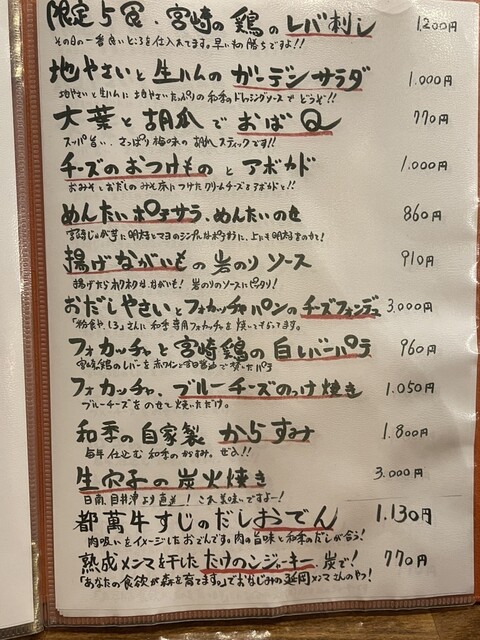 限定5食、宮崎の鶏のレバ刺し 1,200円
その日の一番良いところを仕入れてます。早い者勝ちですよ!!
地やさいと生ハムのガーデンサラダ 1.000円
地やさいと生ハムに地やさいたっぷりの和季のドレッシングソースでどうぞ!!
大葉と胡瓜でおばQ 770円
スッパ旨い、さっぱり梅味の胡瓜スティックです!!
チーズのおつけものとアボカド 1.000円
おみそとおだしのみそ床につけたクリームチーズとアボカドと!!
めんたいポテサラ、めんたいのせ 860円
宮崎じゃが芋に明太とマヨのシンプルなポテサラに、上にも明太をのせて!
揚げながいもの岩のりソース 910円
揚げたらホクホクなながいも! 岩のりのソースにピッタリ!
おだしやさいとフォカッチャパンのチーズフォンデュ 3.000円
さんに和季専用フォカッチャを焼いてもらってます。
フォカッチャと宮崎鶏の白レバーパテ 960円
宮崎鶏のレバーを赤ワインと甘口醤油で煮たパテ
フォカッチャ、ブルーチーズのっけ焼き 1.050円
ブルーチーズをのせて焼いただけ。
和季の自家製からすみ 1.800円
毎年仕込む和季のからすみ、ぜひ!!
生穴子の炭火焼き 3.000円
日南、目井津より直送! これ美味いですよー!
都萬牛すじのだしおでん 1.130円
肉吸いをイメージしたおでんです。肉の旨味と和季のだしが合う!
熟成メンマを干したたけのこジャーキー、炭で! 770円
「あなたの食欲が森を育てます。」でおなじみの延岡メンマさんのやつ!